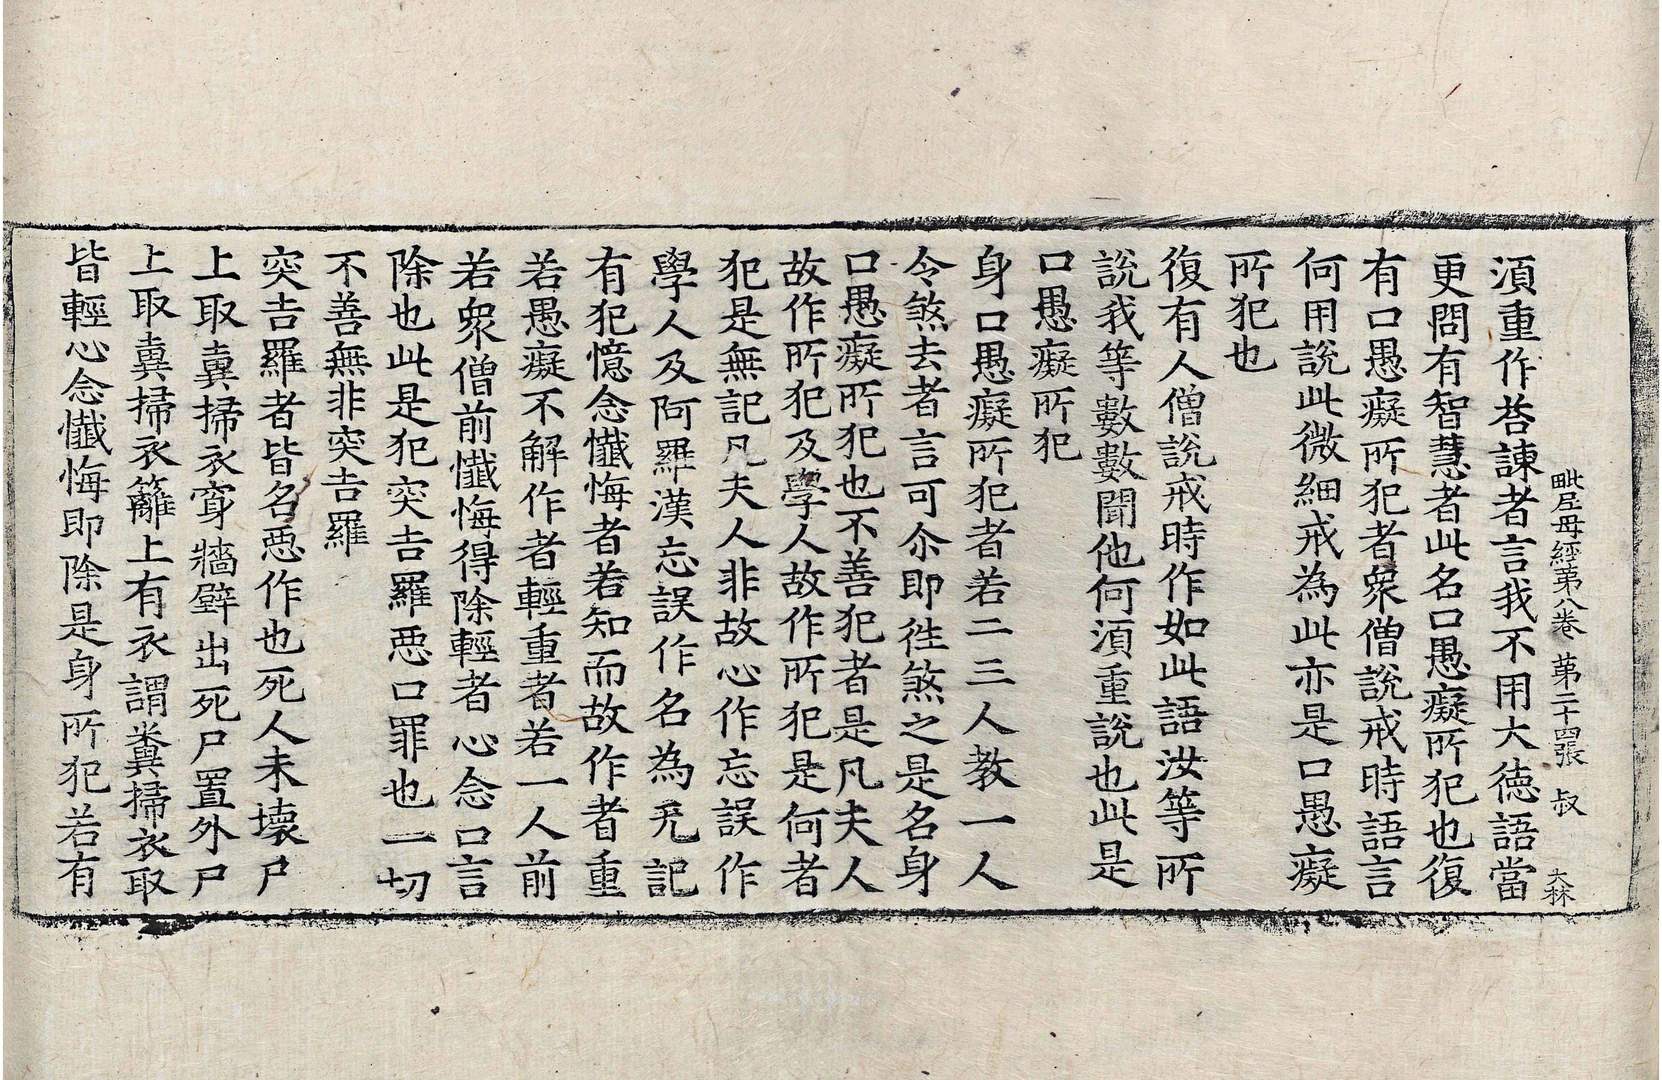 毗尼母經第八卷 第二十四張 叔 大林
湏重作荅諫者言我不用大德語當
更問有智慧者此名口愚癡所犯也復
有口愚癡所犯者衆僧說戒時語言
何用說此微細戒為此亦是口愚癡
所犯也
復有人僧說戒時作如此語汝等所
說我等數數聞他何湏重說也此是
口愚癡所犯
身口愚癡所犯者若二三人教一人
令煞去者言可尒即徃煞之是名身
口愚癡所犯也不善犯者是凡夫人
故作所犯及學人故作所犯是何者
犯是無記凡夫人非故心作忘誤作
學人及阿羅漢忘誤作名為无記
有犯憶念懺悔者若知而故作者重
若愚癡不解作者輕重者若一人前
若衆僧前懺悔得除輕者心念口言
除也此是犯突吉羅惡口罪也一切
不善無非突吉羅
突吉羅者皆名惡作也死人未壞尸
上取糞掃衣穿牆壁出死尸置外尸
上取糞掃衣籬上有衣謂糞掃衣取
皆輕心念懺悔即除是身所犯若有